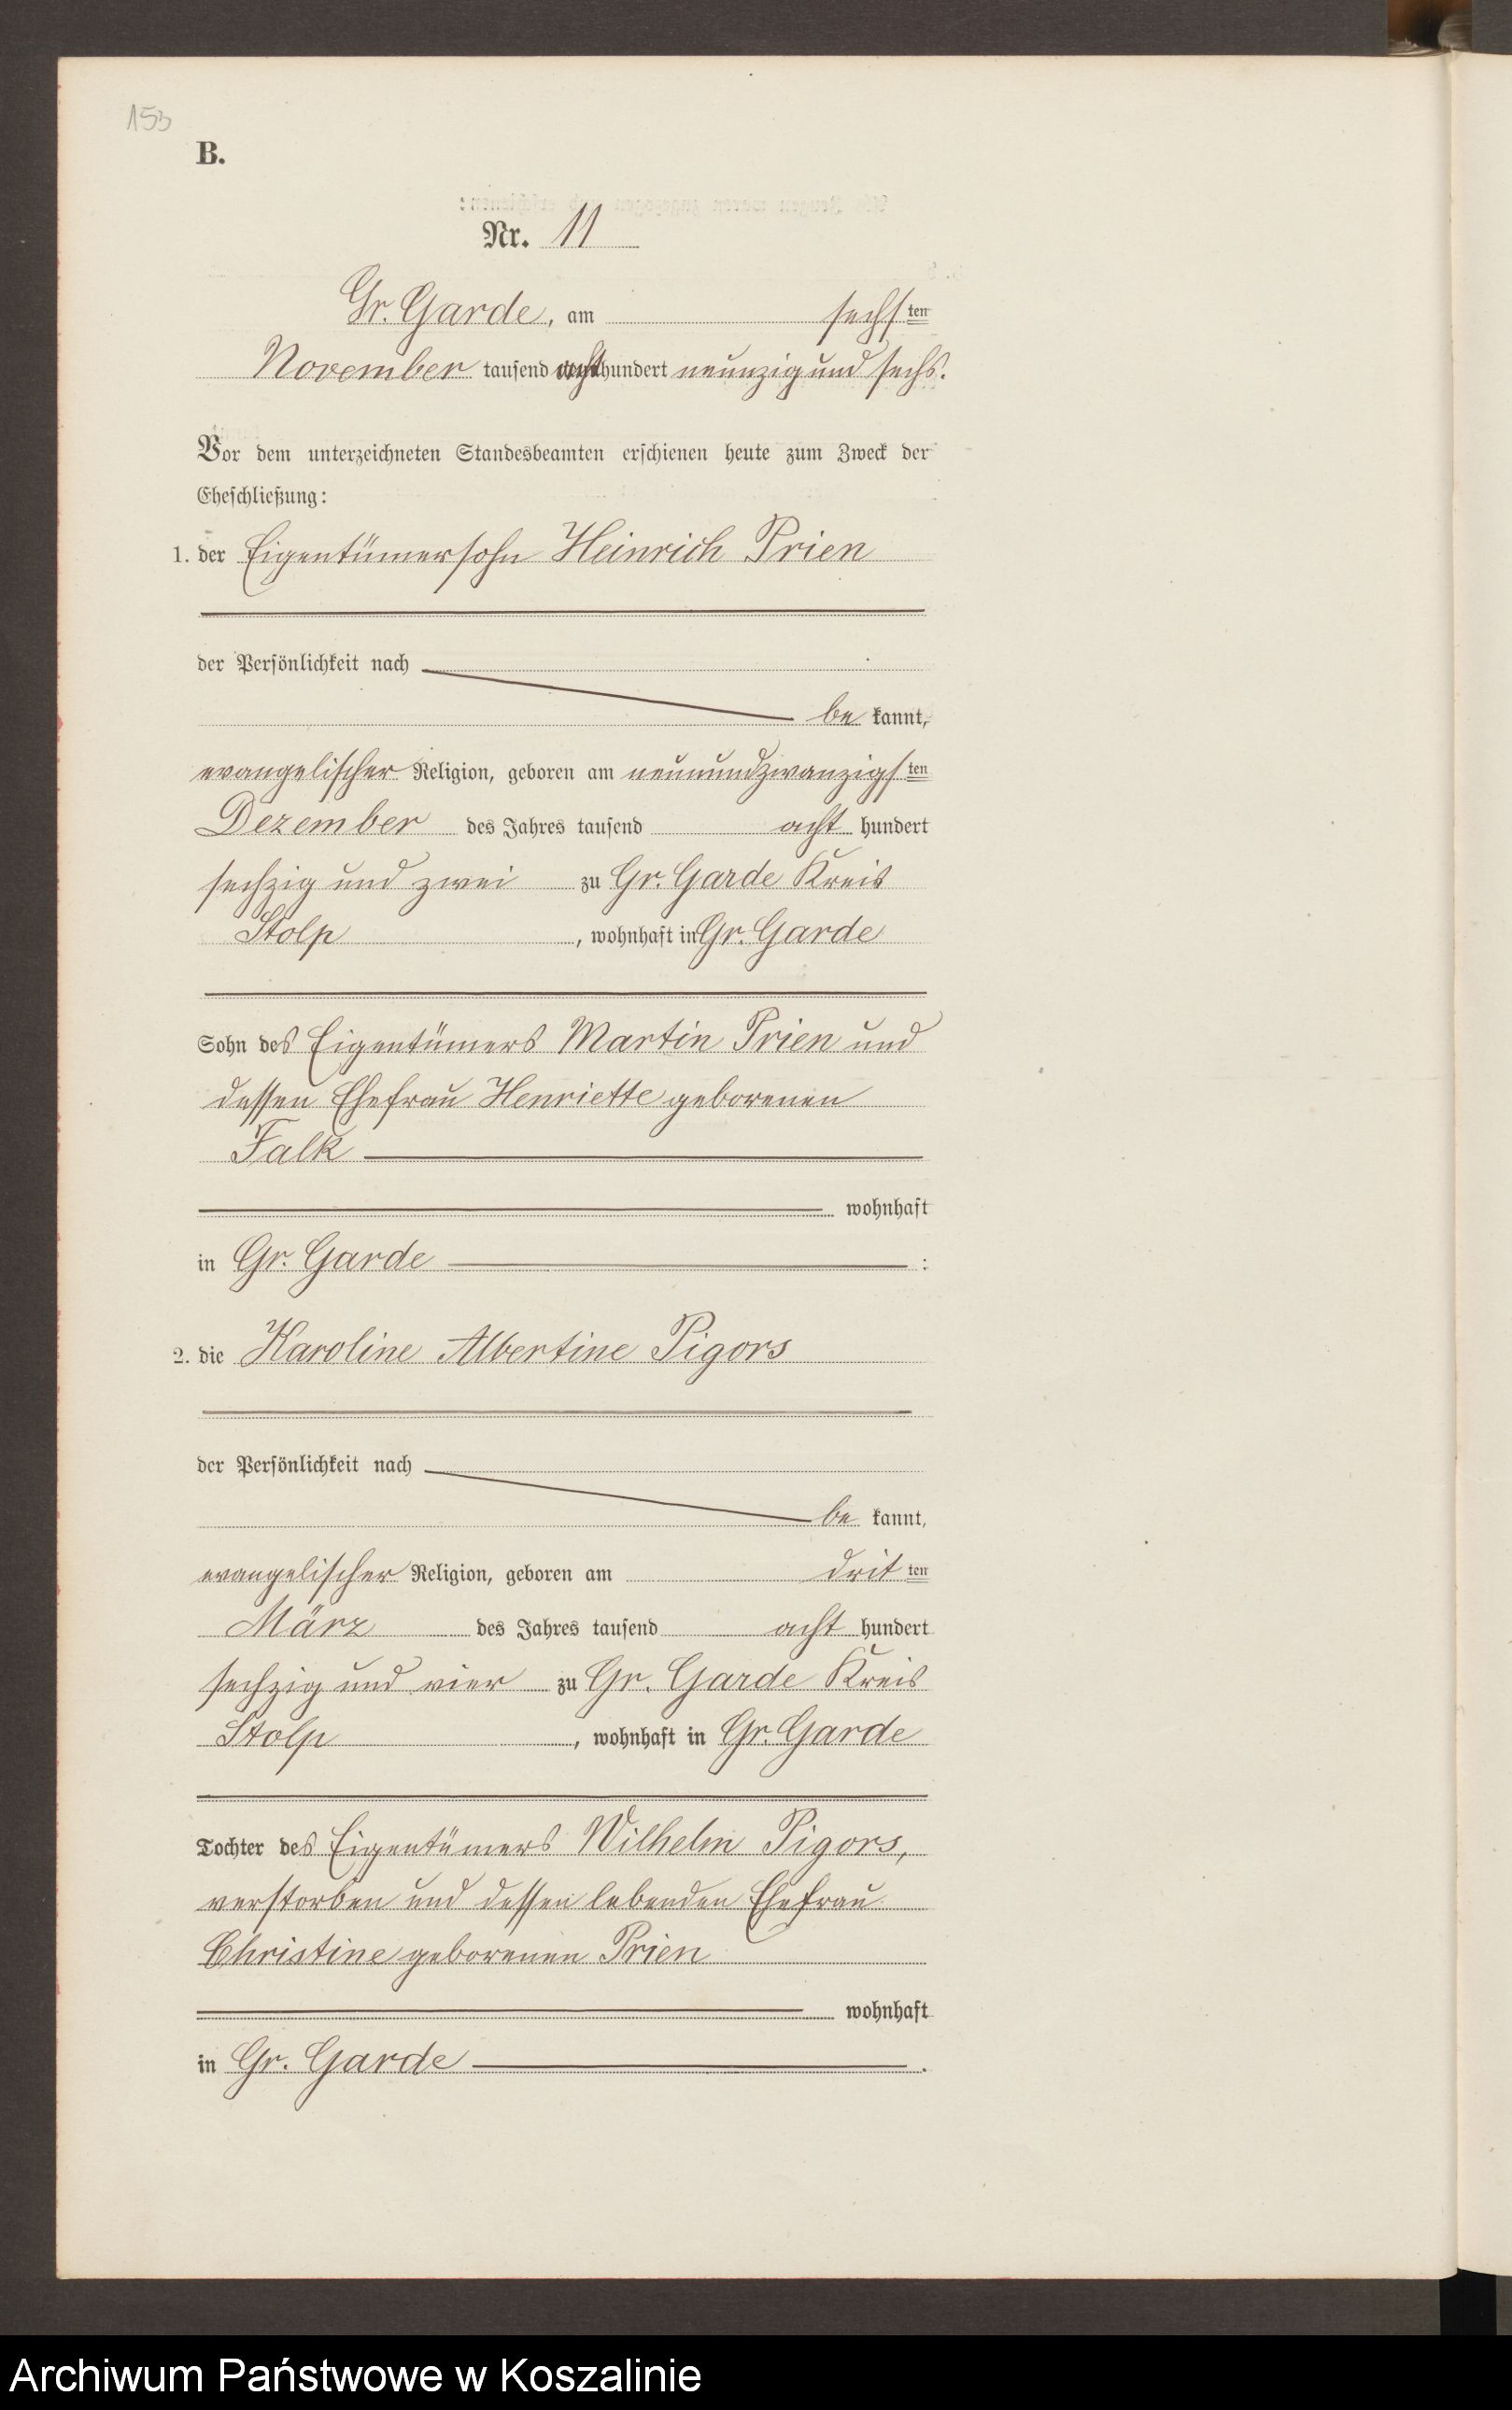 153
B.
Nr. 11
Gr. Garde, am sechsten
November tausend achthundert neunzig und sechs.
Vor dem unterzeichneten Standesbeamten erschienen heute zum Zweck der
Eheschließung:
1. der Eigentümersohn Heinrich Prien
der Persönlichkeit nach
be kannt,
evangelischer Religion, geboren am neunundzwanzigsten
Dezember des Jahres tausend acht hundert
sechzig und zwei zu Gr. Garde Kreis
Stolp, wohnhaft in Gr. Garde
Sohn des Eigentümers Martin Prien und
dessen Ehefrau Henriette geborenen
Falk
wohnhaft
in Gr. Garde :
2. die Karoline Albertine Pigors
der Persönlichkeit nach
be kannt,
evangelischer Religion, geboren am dritten
März des Jahres tausend acht hundert
sechzig und vier zu Gr. Garde Kreis
Stolp, wohnhaft in Gr. Garde
Tochter des Eigentümers Wilhelm Pigors,
verstorben und dessen lebenden Ehefrau
Christine geborenen Prien
wohnhaft
in Gr. Garde .
Archiwum Państwowe w Koszalinie